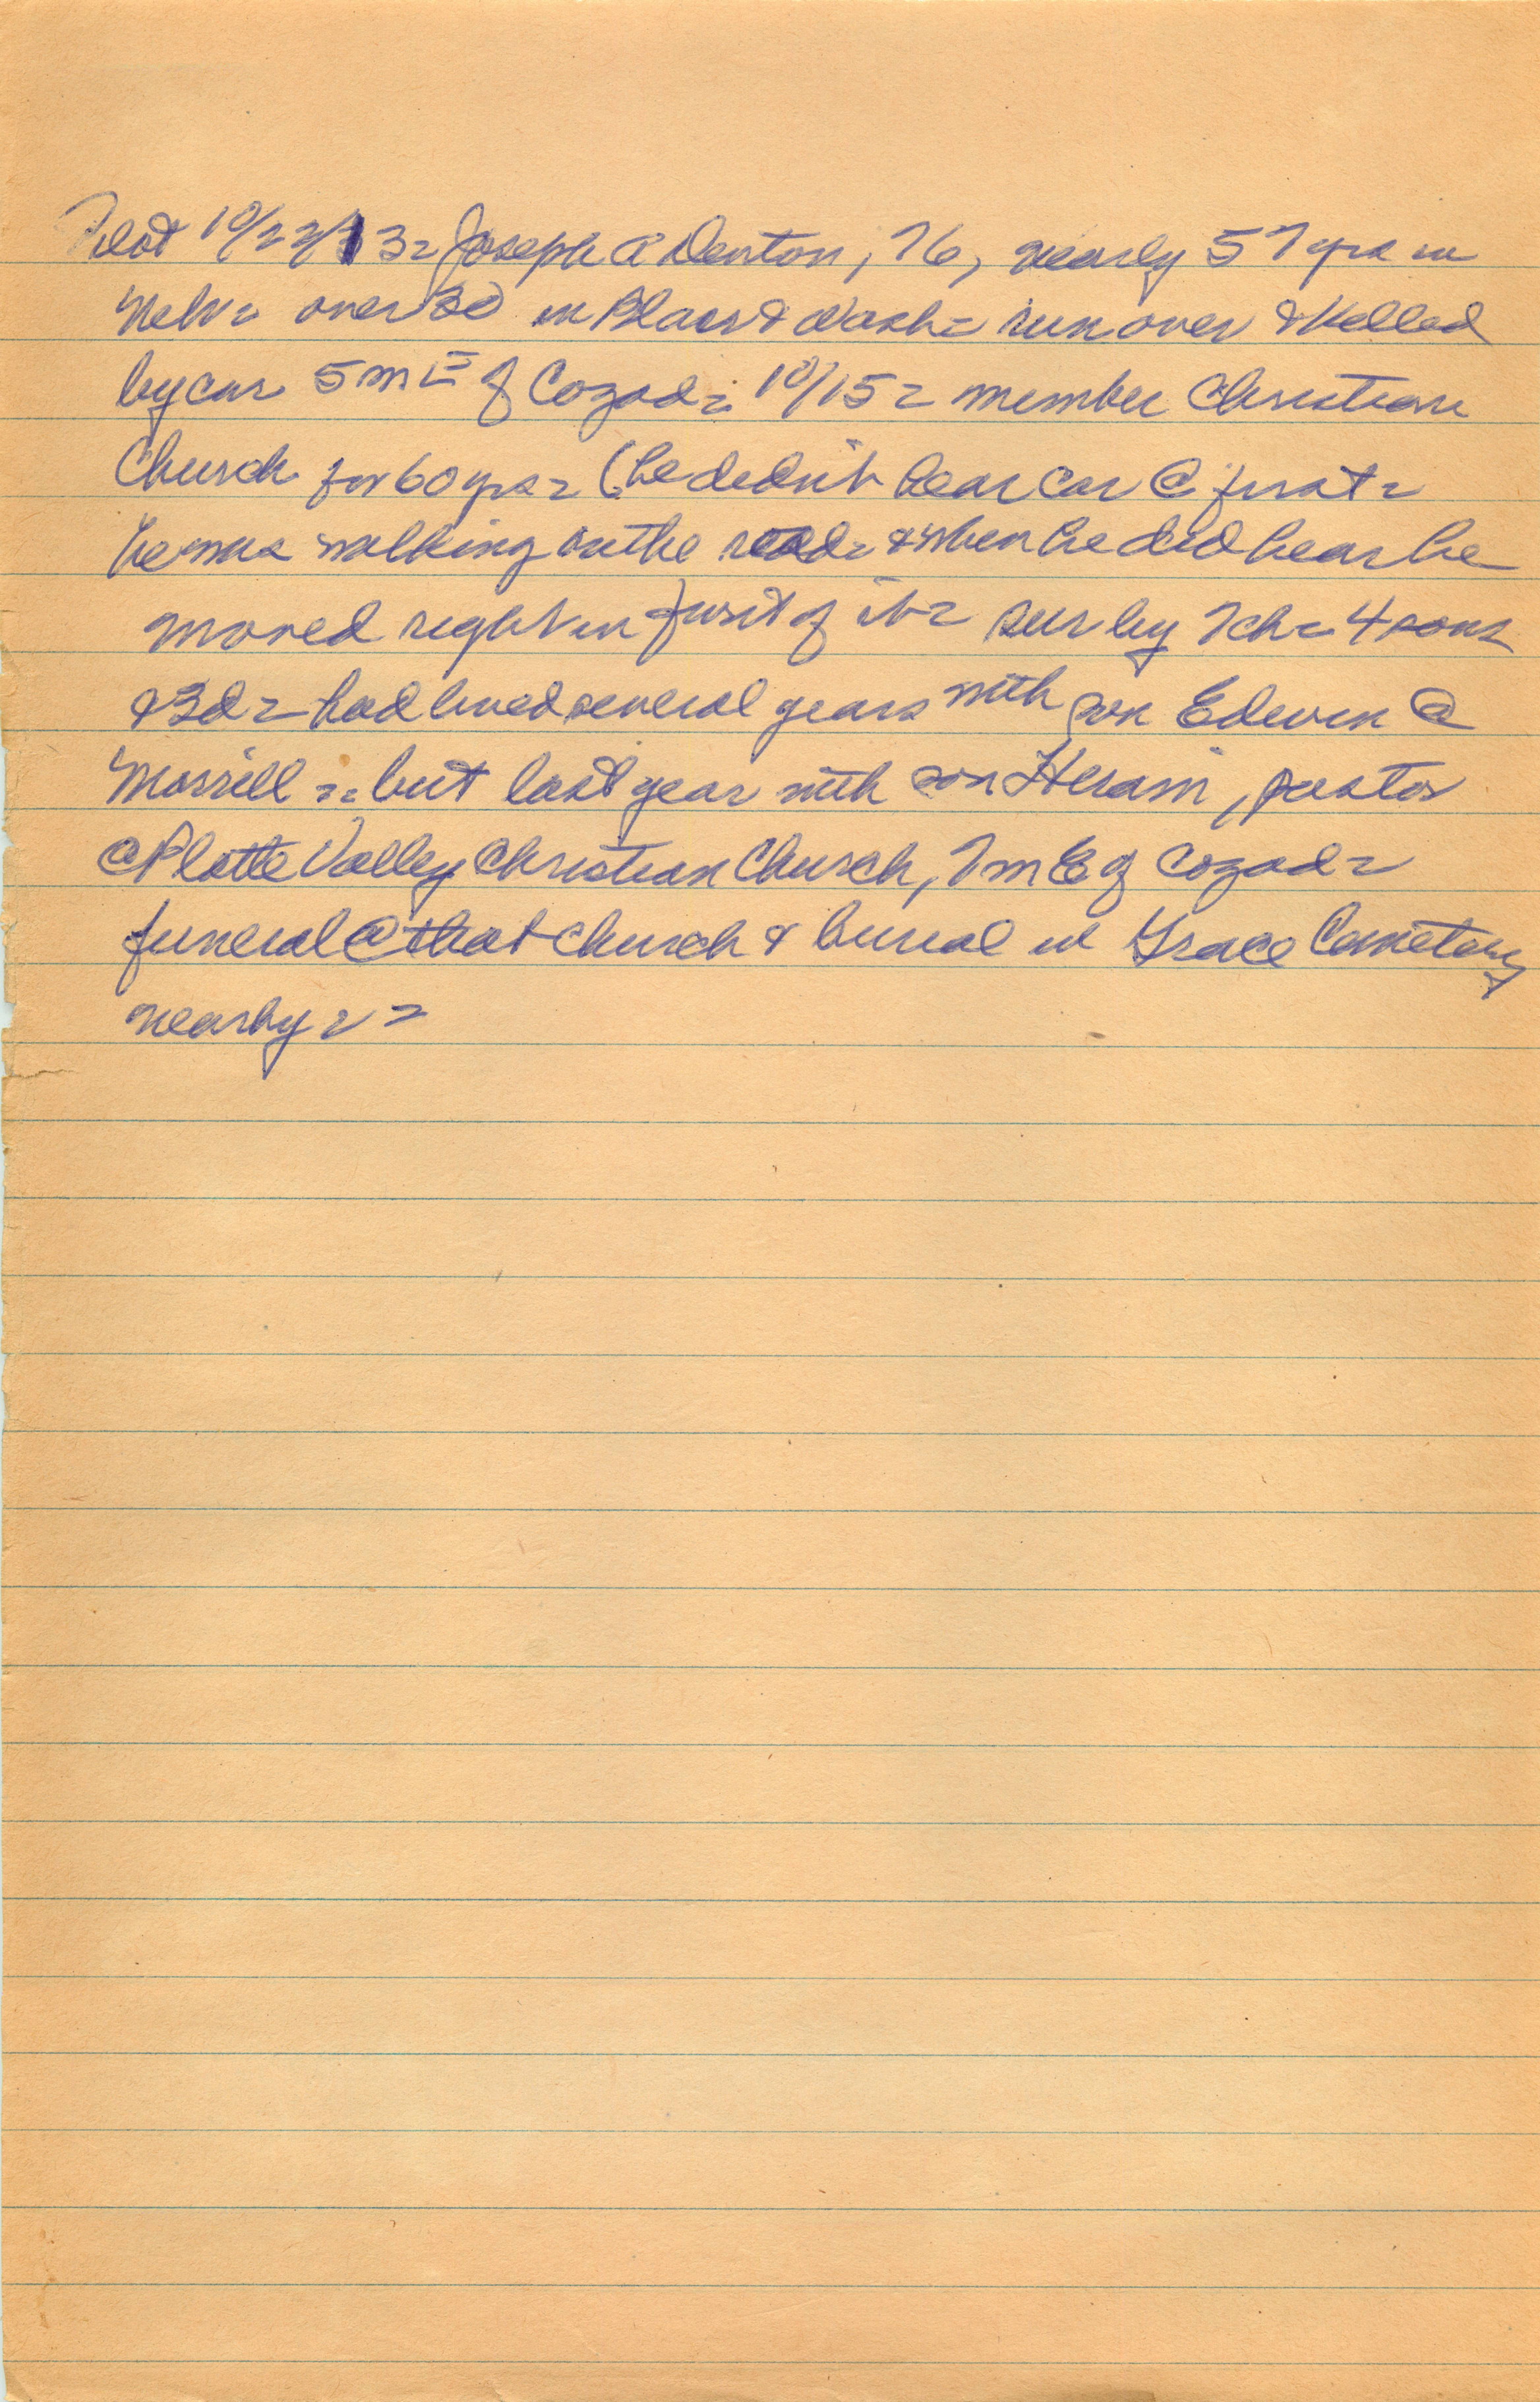 Pilot 10/22/13 = Joseph A Denton, 76, nearly 57 yrs in
Neb = over 30 in Blair & Wash = run over & killed
by car 5 m E of Cozad = 10/15 = member Christian
Church for 60 yrs = (he didn't hear car @ first =
he was walking on the road = & when he did hear he
moved right in front of it = sur by 7 ch = 4 sons
& 3 d = had lived several years with son Edwin @
Morrill = but last year with son Hiram, pastor
@ Platte Valley Christian Church, 7 m E of Cozad =
funeral @ that church & burial in Grace Cemetery
nearby = =